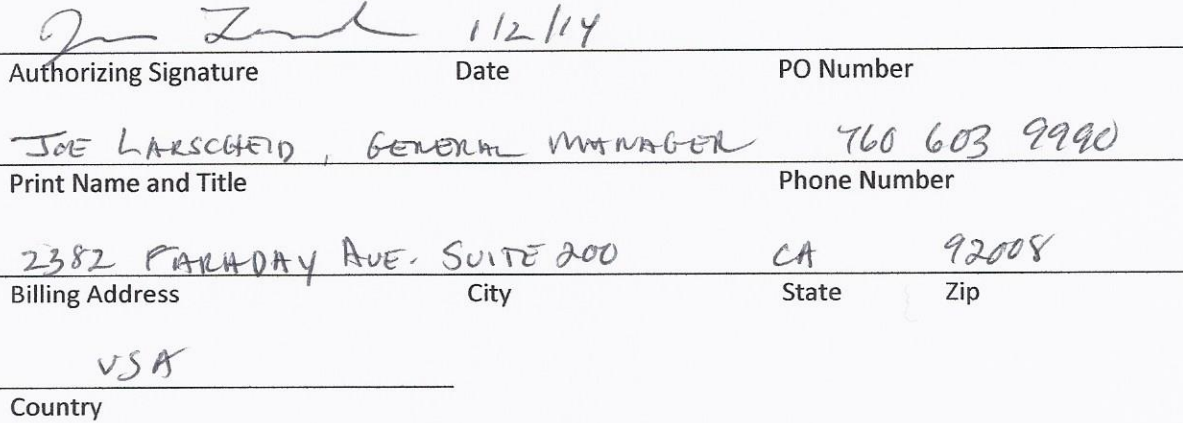 1/2/14
Authorizing Signature Date PO Number
JOE LARSCHEID, GENERAL MANAGER 760 603 9990
Print Name and Title Phone Number
2382 FARADAY AVE. SUITE 200 CA 92008
Billing Address City State Zip
USA
Country